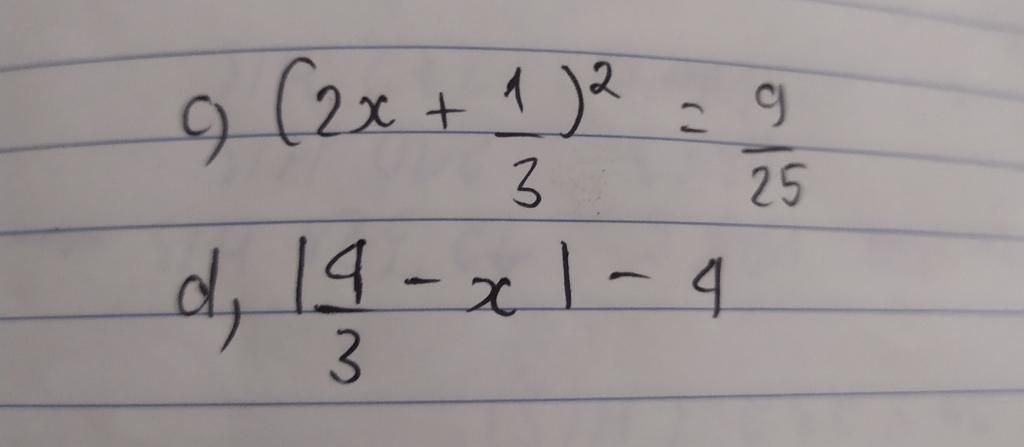 c) (2x + 1/3)² = 9/25
d, |4/3 - x| - 4